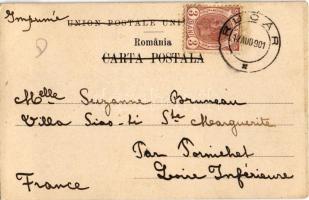 Imprimé
UNION POSTALE UNI
România
CARTA POSTALA
3 3
RUCĂR
12 AUG 901
Melle Suzanne Bruneau
Villa Sias-ti Ste Marguerite
Par Pornichet
Loire Inférieure
France